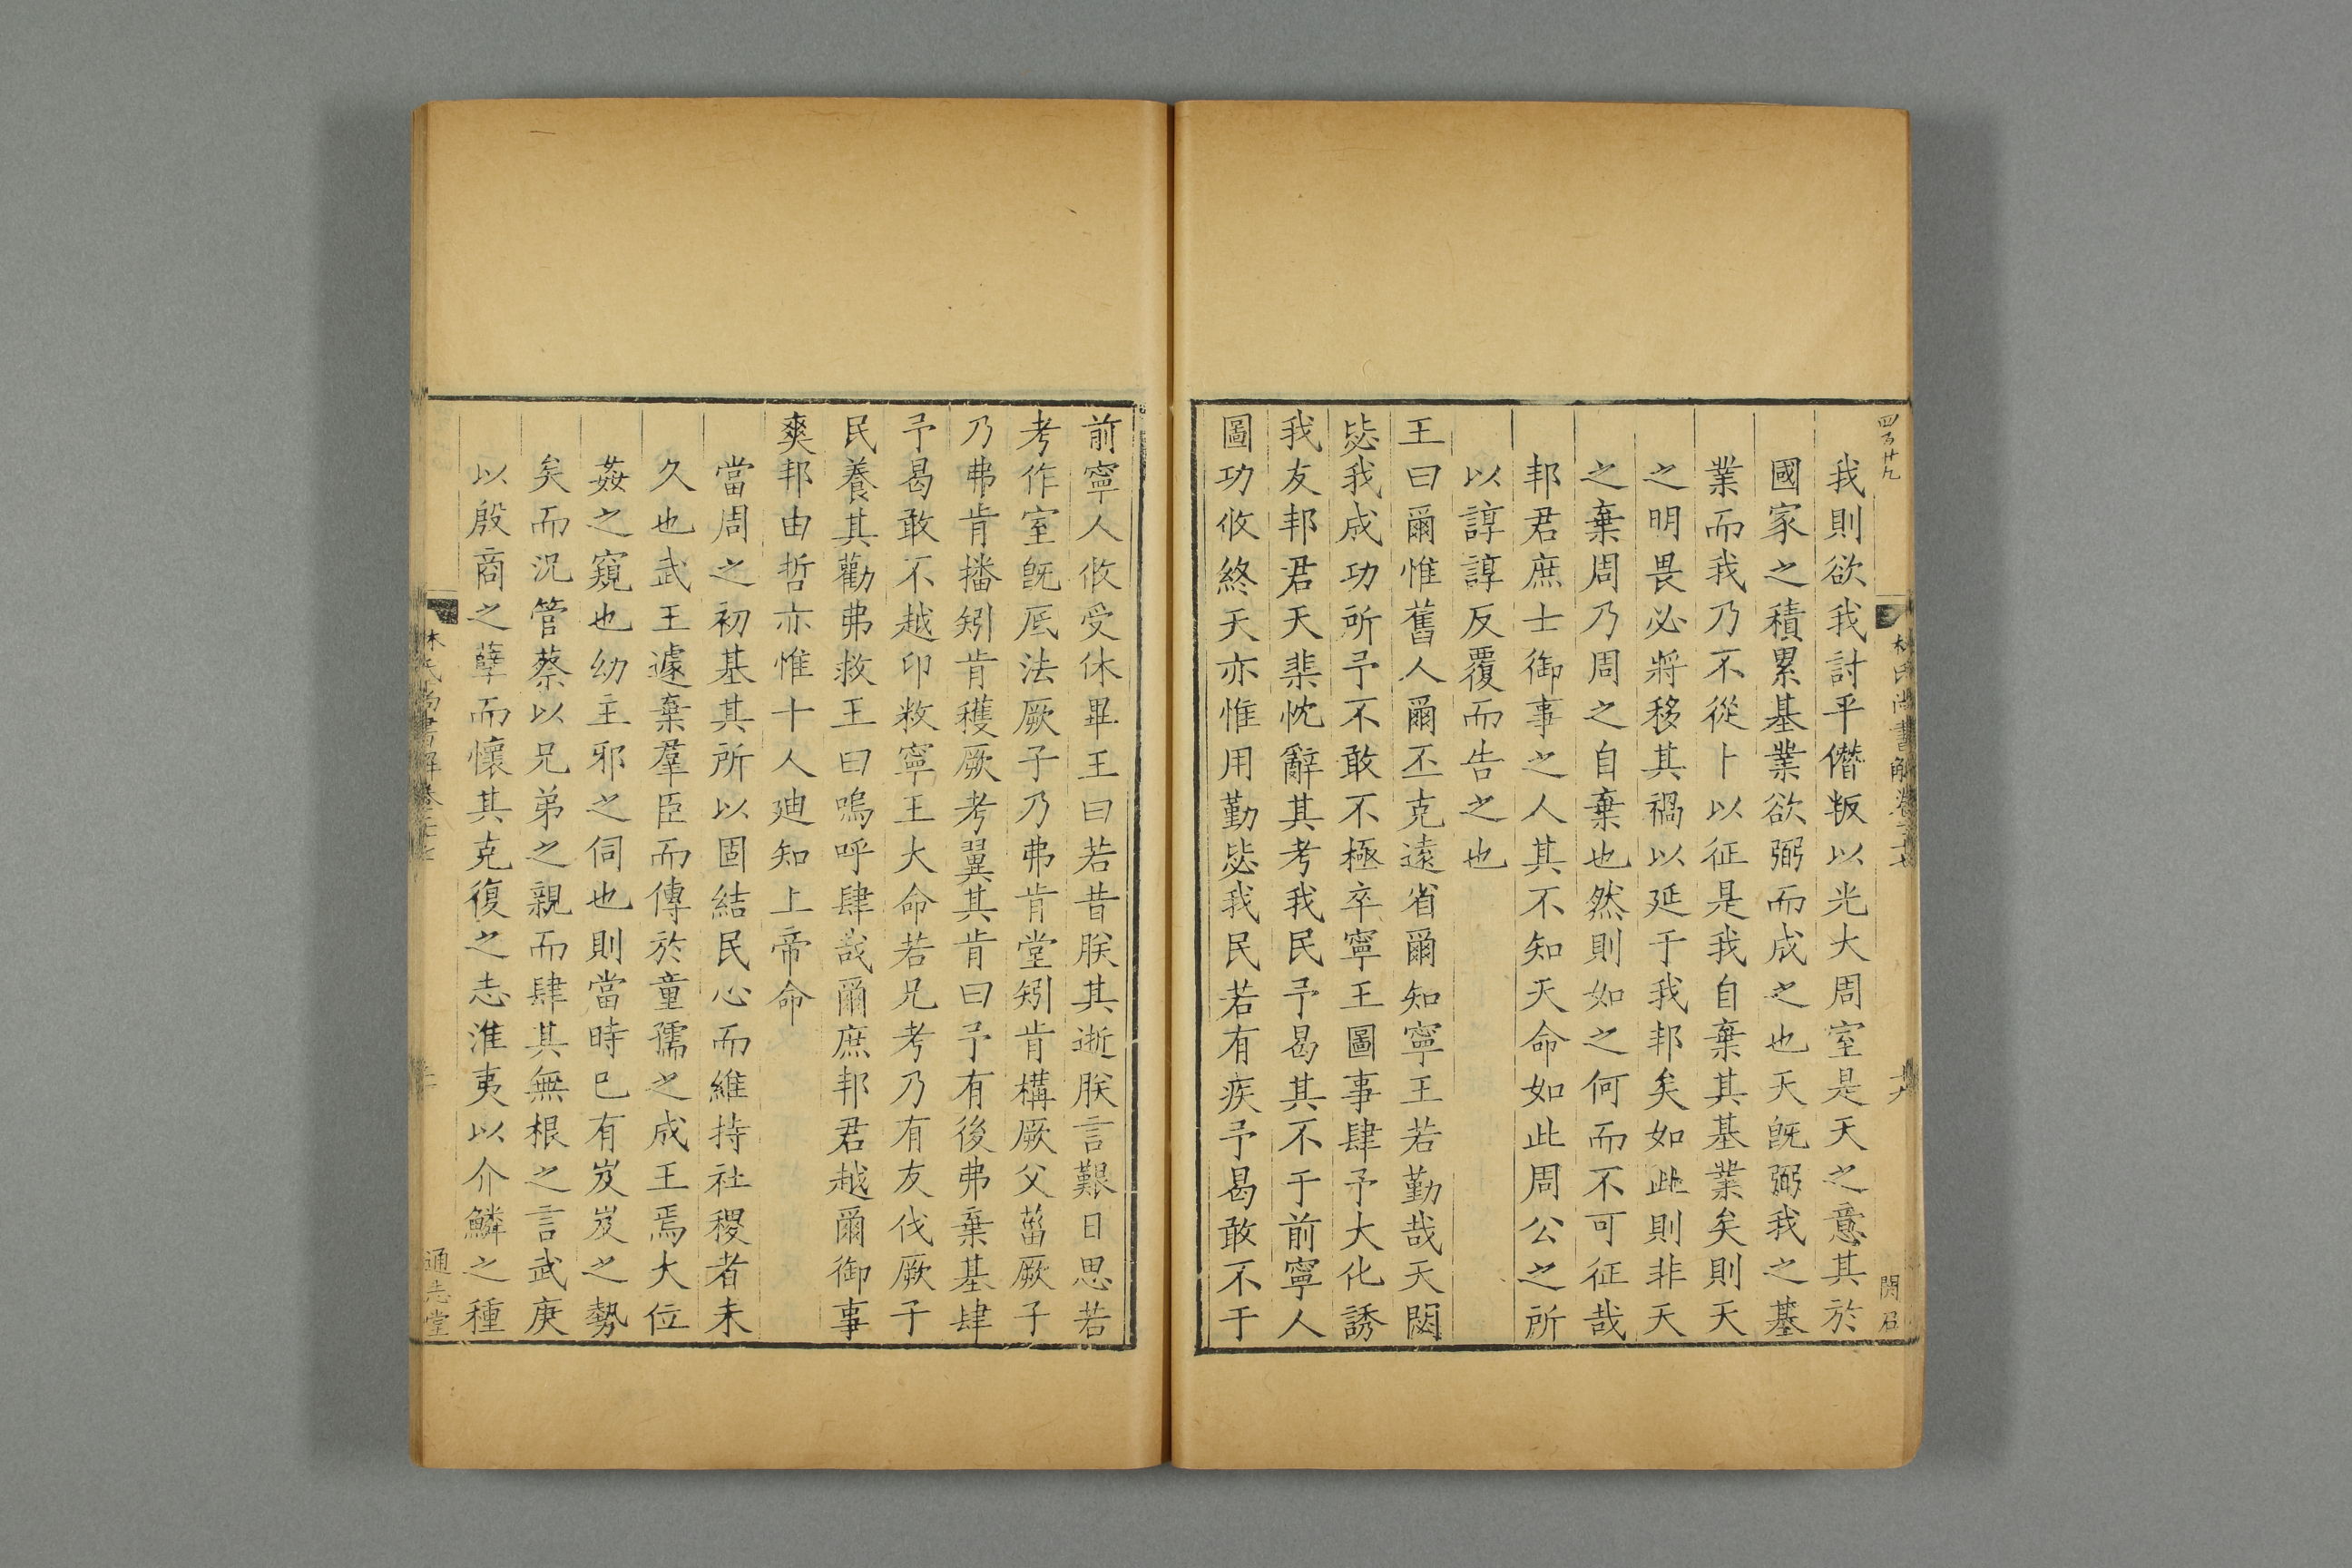 四百廿九
我則欲我討平僭叛以光大周室是天之意其於
國家之積累基業欲弼而成之也天旣弼我之基
業而我乃不從卜以征是我自棄其基業矣則天
之明畏必將移其禍以延于我邦矣如此則非天
之棄周乃周之自棄也然則如之何而不可征哉
邦君庶士御事之人其不知天命如此周公之所
以諄諄反覆而告之也
王曰爾惟舊人爾丕克遠省爾知寧王若勤哉天閟
毖我成功所予不敢不極卒寧王圖事肆予大化誘
我友邦君天棐忱辭其考我民予曷其不于前寧人
圖功攸終天亦惟用勤毖我民若有疾予曷敢不于
前寧人攸受休畢王曰若昔朕其逝朕言艱日思若
考作室旣厎法厥子乃弗肯堂矧肯構厥父菑厥子
乃弗肯播矧肯穫厥考翼其肯曰予有後弗棄基肆
予曷敢不越卬敉寧王大命若兄考乃有友伐厥子
民養其勸弗救王曰嗚呼肆哉爾庶邦君越爾御事
爽邦由哲亦惟十人迪知上帝命
當周之初基其所以固結民心而維持社稷者未
久也武王遽棄羣臣而傳於童孺之成王焉大位
姦之窺也幼主邪之伺也則當時已有岌岌之勢
矣而況管蔡以兄弟之親而肆其無根之言武庚
以殷商之孽而懷其克復之志淮夷以介鱗之種
林氏尚書解卷二十七
通志堂